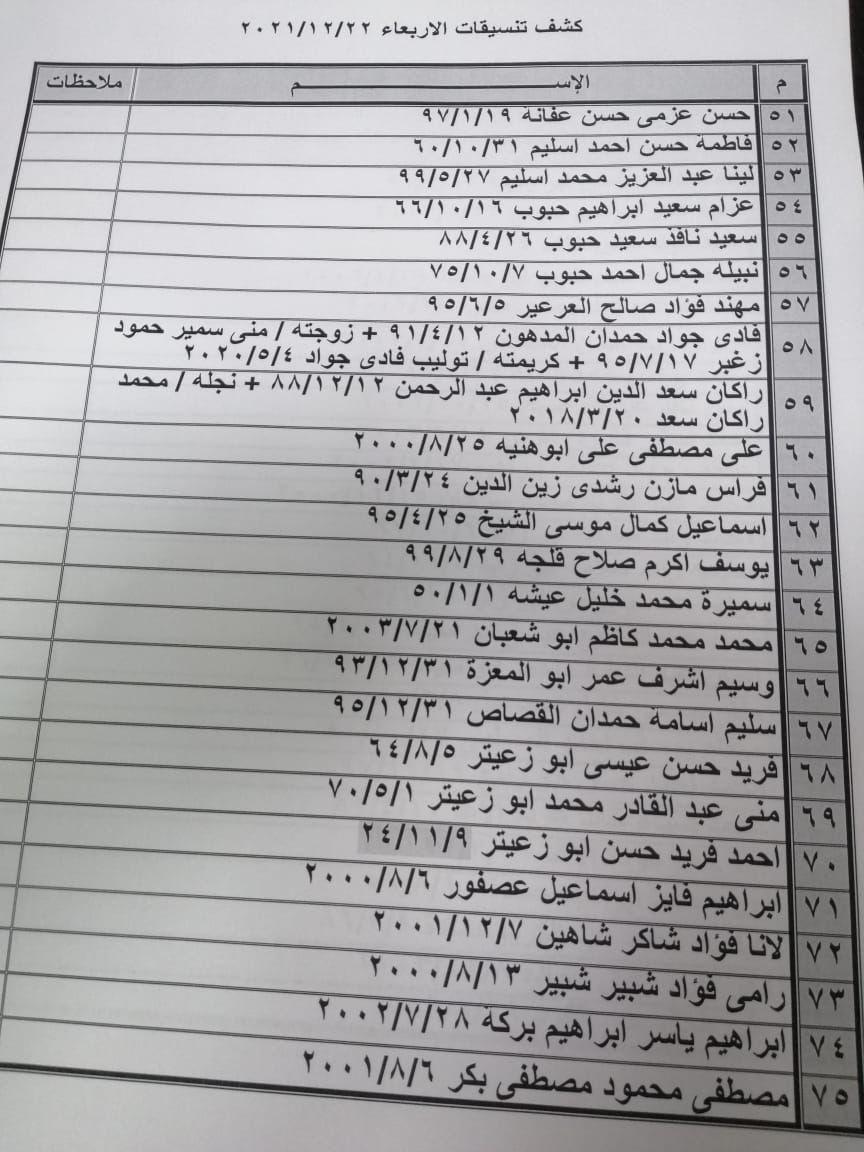 كشف تنسيقات الاربعاء ٢٠٢١/١٢/٢٢
م الإســـــم ملاحظات
٥١ حسن عزمى حسن عفانة ٩٧/١/١٩
٥٢ فاطمة حسن احمد اسليم ٦٠/١٠/٣١
٥٣ لينا عبد العزيز محمد اسليم ٩٩/٥/٢٧
٥٤ عزام سعيد ابراهيم حبوب ٦٦/١٠/١٦
٥٥ سعيد نافذ سعيد حبوب ٨٨/٤/٢٦
٥٦ نبيله جمال احمد حبوب ٧٥/١٠/٧
٥٧ مهند فؤاد صالح العرعير ٩٥/٦/٥
٥٨ فادى جواد حمدان المدهون ٩١/٤/١٢ + زوجته / منى سمير حمود
زغبر ٩٥/٧/١٧ + كريمته / توليب فادى جواد ٢٠٢٠/٥/٤
٥٩ راكان سعد الدين ابراهيم عبد الرحمن ٨٨/١٢/١٢ + نجله / محمد
راكان سعد ٢٠١٨/٣/٢٠
٦٠ على مصطفى على ابوهنيه ٢٠٠٠/٨/٢٥
٦١ فراس مازن رشدى زين الدين ٩٠/٣/٢٤
٦٢ اسماعيل كمال موسى الشيخ ٩٥/٤/٢٥
٦٣ يوسف اكرم صلاح قلجه ٩٩/٨/٢٩
٦٤ سميرة محمد خليل عيشه ٥٠/١/١
٦٥ محمد محمد كاظم ابو شعبان ٢٠٠٣/٧/٢١
٦٦ وسيم اشرف عمر ابو المعزة ٩٣/١٢/٣١
٦٧ سليم اسامة حمدان القصاص ٩٥/١٢/٣١
٦٨ فريد حسن عيسى ابو زعيتر ٦٤/٨/٥
٦٩ منى عبد القادر محمد ابو زعيتر ٧٠/٥/١
٧٠ احمد فريد حسن ابو زعيتر ٢٤/١١/٩
٧١ ابراهيم فايز اسماعيل عصفور ٢٠٠٠/٨/٦
٧٢ لانا فؤاد شاكر شاهين ٢٠٠١/١٢/٧
٧٣ رامى فؤاد شبير شبير ٢٠٠٠/٨/١٣
٧٤ ابراهيم ياسر ابراهيم بركة ٢٠٠٢/٧/٢٨
٧٥ مصطفى محمود مصطفى بكر ٢٠٠١/٨/٦